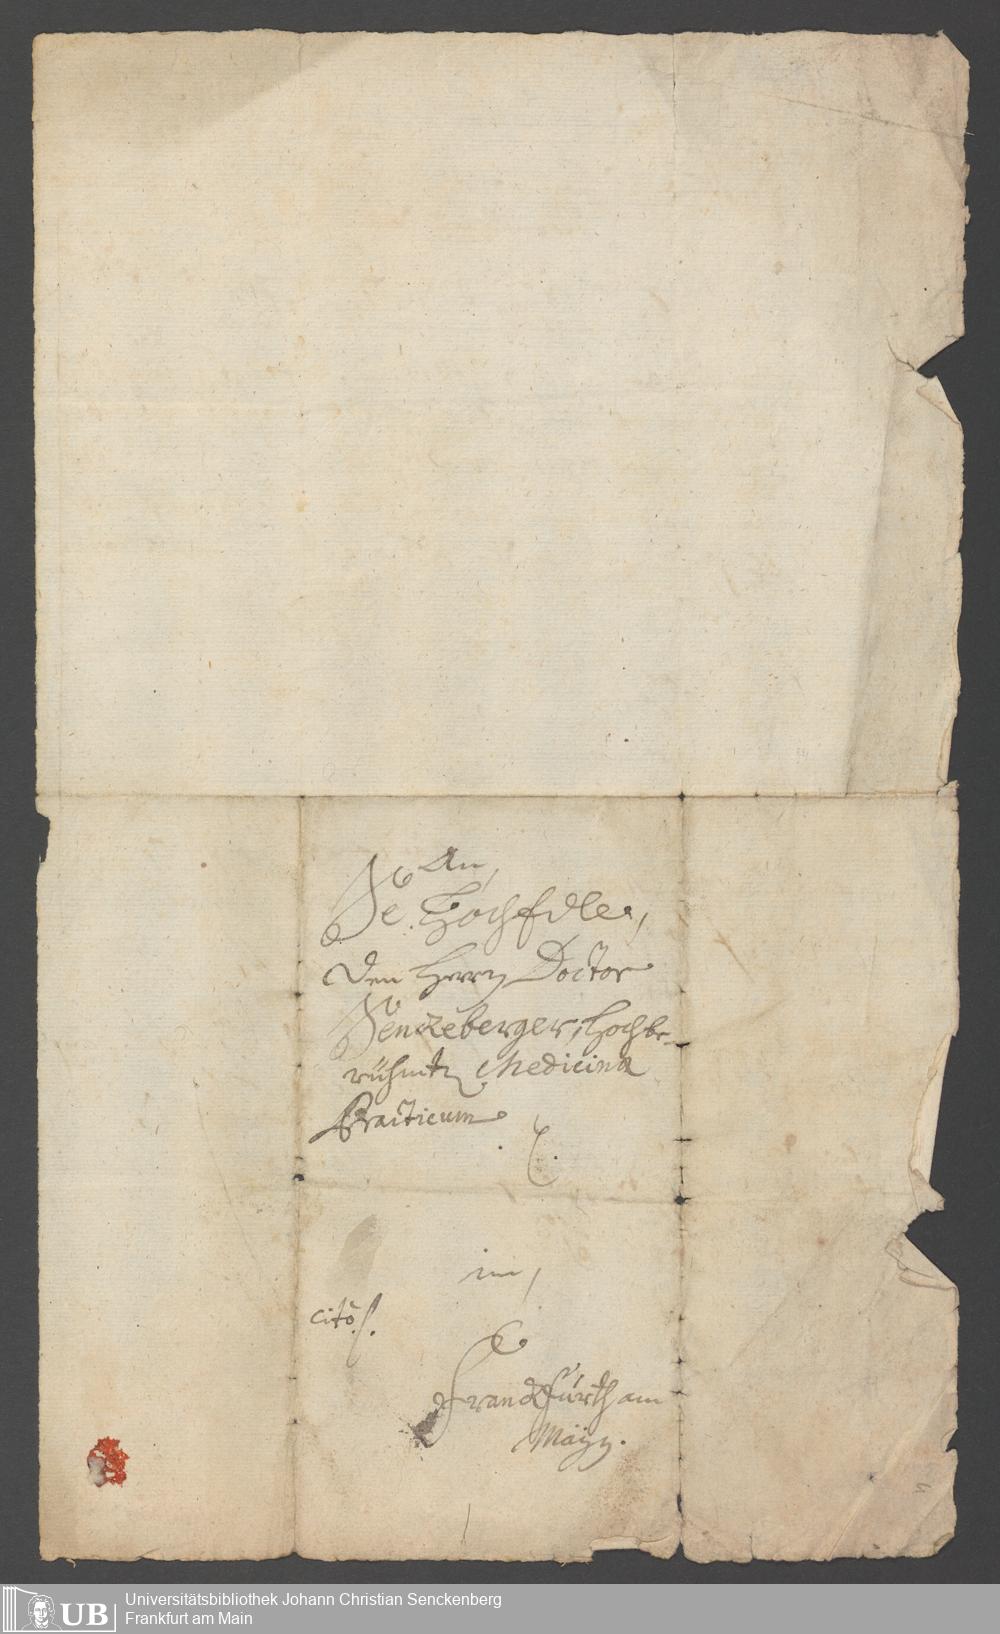 An,
Se. HochEdle,
den Herrn Doctor
Senckeberger, Hochbe-
rühmtn Medicinæ
Practicum
in,
citò
Franckfürth am
Mäyn.
Universitätsbibliothek Johann Christian Senckenberg
UB
Frankfurt am Main